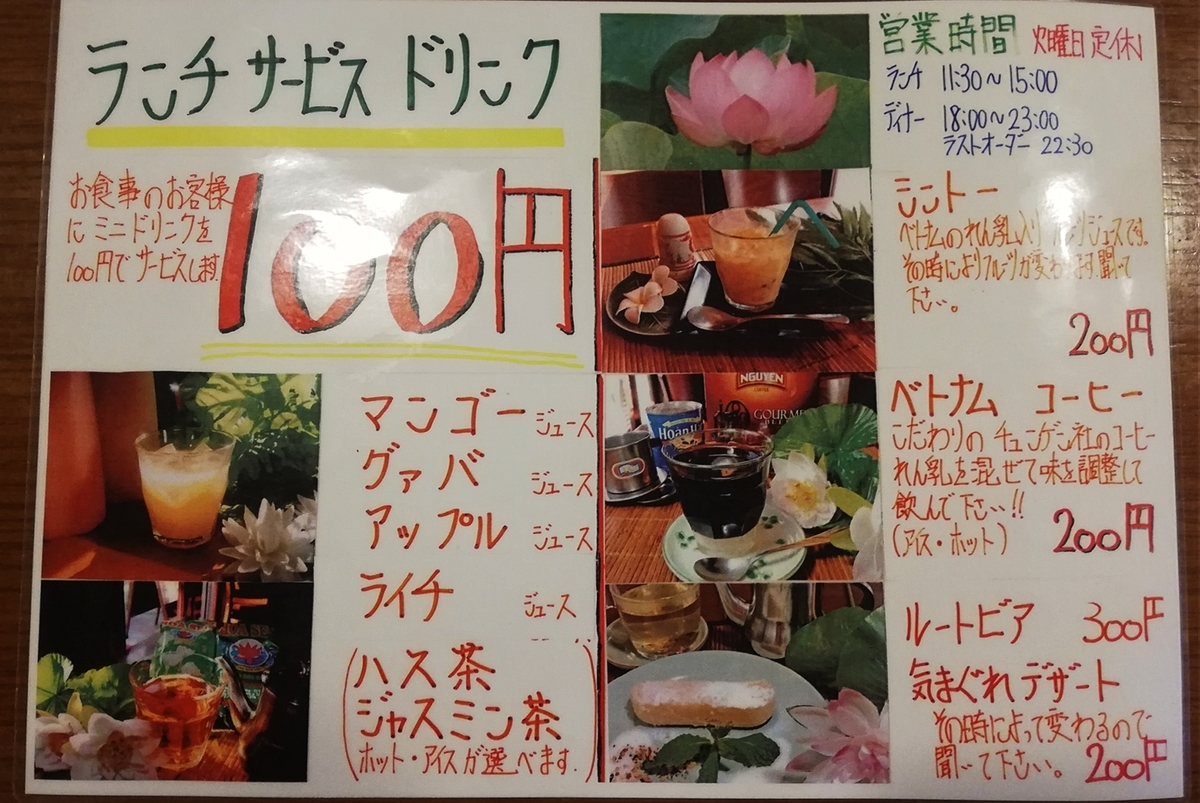 ランチサービスドリンク
お食事のお客様
にミニドリンクを
100円でサービスします
100円
マンゴージュース
グァバ ジュース
アップル ジュース
ライチ ジュース
(ハス茶
ジャスミン茶
ホット・アイスが選べます.)
営業時間 火曜日定休
ランチ 11:30~15:00
ディナー 18:00~23:00
ラストオーダー 22:30
シントー
ベトナムのれん乳入り ジュースです.
その時によりフルーツが変わ ます 聞いて
下さい。
200円
NGUYEN
GOURME
ベトナム コーヒー
こだわりの チュングェン社のコーヒー
れん乳を混ぜて味を調整して
飲んで下さい!!
(アイス・ホット) 200円
ルートビア 300円
気まぐれデザート
その時によって変わるので
聞いて下さい。 200円